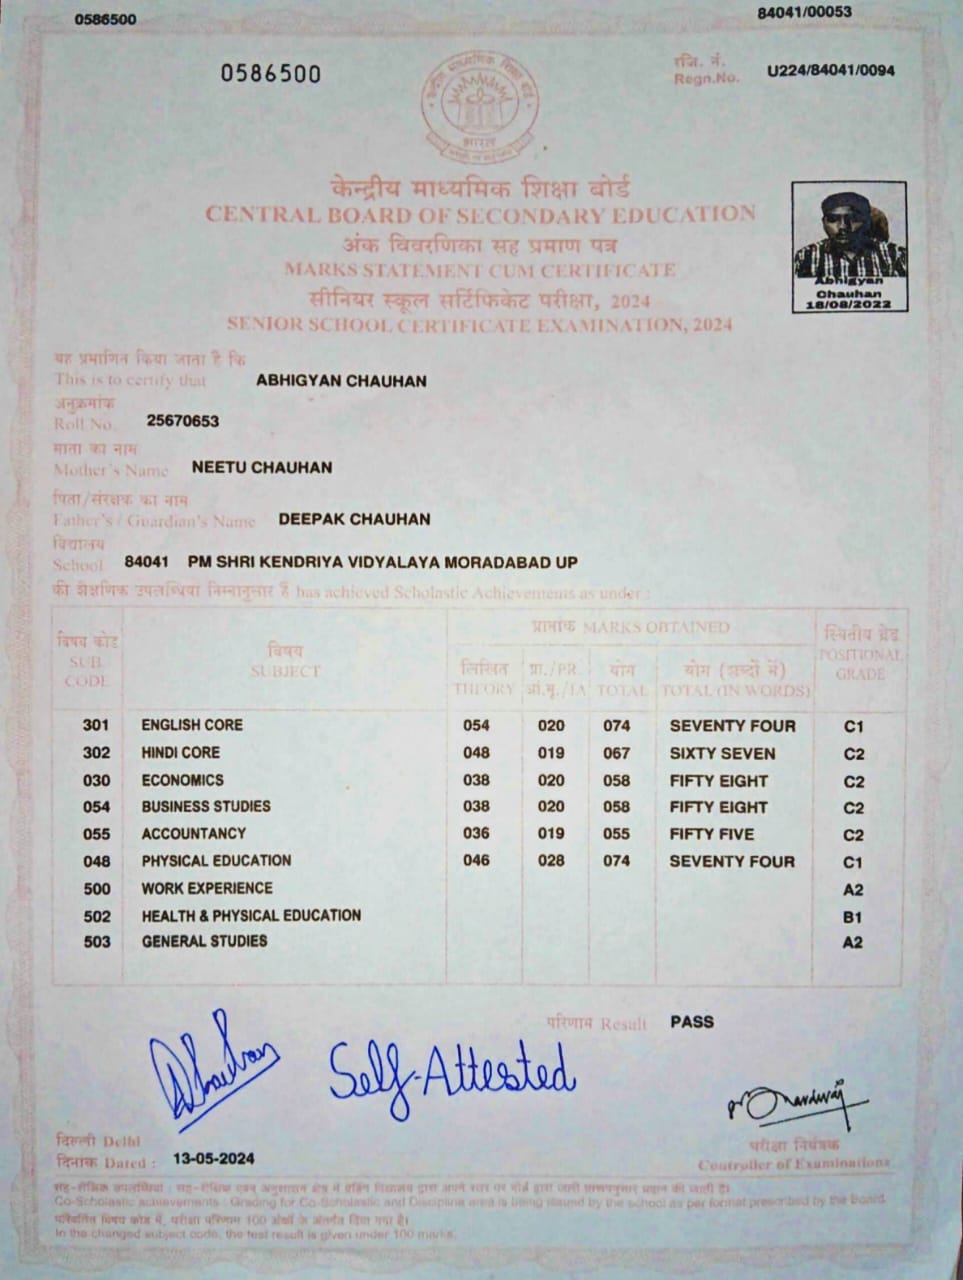 0586500
84041/00053
0586500
रजि. नं.
Regn.No. U224/84041/0094
भारत
केन्द्रीय माध्यमिक शिक्षा बोर्ड
CENTRAL BOARD OF SECONDARY EDUCATION
अंक विवरणिका सह प्रमाण पत्र
MARKS STATEMENT CUM CERTIFICATE
सीनियर स्कूल सर्टिफिकेट परीक्षा, 2024
SENIOR SCHOOL CERTIFICATE EXAMINATION, 2024
Abhigyan
Chauhan
18/08/2022
यह प्रमाणित किया जाता है कि
This is to certify that ABHIGYAN CHAUHAN
अनुक्रमांक
Roll No. 25670653
माता का नाम
Mother's Name NEETU CHAUHAN
पिता/संरक्षक का नाम
Father's / Guardian's Name DEEPAK CHAUHAN
विद्यालय
School 84041 PM SHRI KENDRIYA VIDYALAYA MORADABAD UP
की शैक्षणिक उपलब्धियां निम्नानुसार हैं has achieved Scholastic Achievements as under :
विषय कोड SUB. CODE विषय SUBJECT प्राप्तांक MARKS OBTAINED स्थितीय ग्रेड POSITIONAL GRADE
लिखित THEORY प्रा./PR. आं.मू./IA योग TOTAL योग (शब्दों में) TOTAL (IN WORDS)
301 ENGLISH CORE 054 020 074 SEVENTY FOUR C1
302 HINDI CORE 048 019 067 SIXTY SEVEN C2
030 ECONOMICS 038 020 058 FIFTY EIGHT C2
054 BUSINESS STUDIES 038 020 058 FIFTY EIGHT C2
055 ACCOUNTANCY 036 019 055 FIFTY FIVE C2
048 PHYSICAL EDUCATION 046 028 074 SEVENTY FOUR C1
500 WORK EXPERIENCE A2
502 HEALTH & PHYSICAL EDUCATION B1
503 GENERAL STUDIES A2
परिणाम Result PASS
Self-Attested
दिल्ली Delhi
दिनांक Dated : 13-05-2024
परीक्षा नियंत्रक
Controller of Examinations
Co-Scholastic achievements : Grading for Co-Scholastic and Discipline area is being issued by the school as per format prescribed by the Board.
परिवर्तित विषय कोड में, परीक्षा परिणाम 100 अंकों के अंतर्गत दिया गया है।
In the changed subject code, the test result is given under 100 marks.